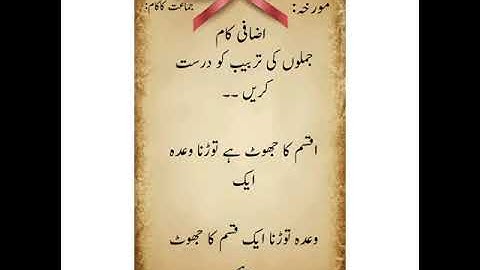 مورخہ: جماعت کاکام:
اضافی کام
جملوں کی تربیب کو درست
کریں ۔۔
اقسم کا جھوٹ ہے توڑنا وعدہ
ایک
وعدہ توڑنا ایک قسم کا جھوٹ